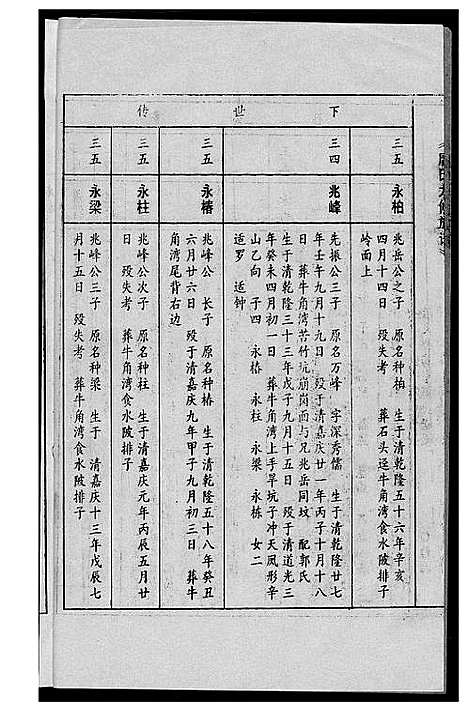 下世传
三五
永柏
兆岳公之子 原名种柏 生于清乾隆五十六年辛亥
四月十四日 殁失考 葬石头迳牛角湾食水陂排
岭面上
三四
兆峰
先振公三子 原名万峰 字深秀儒 生于清乾隆廿七
年壬午九月十九日 殁于清嘉庆廿一年丙子十月十八
日 葬牛角湾苦竹坑崩岗面与兄兆岳同坟 配郭氏
生于清乾隆三十三年戊子九月十五日 殁于清道光三
年癸未四月初一日 葬牛角湾上手旱坑子冲天凤形辛
山乙向 子四 永椿 永柱 永梁 永栋 女二
适罗 适钟
三五
永椿
兆峰公 长子 原名种椿 生于清乾隆五十八年癸丑
六月廿六日 殁于清嘉庆九年甲子九月初三日 葬牛
角湾尾背右边
三五
永柱
兆峰公次子 原名种柱 生于清嘉庆元年丙辰五月廿
日 殁失考 葬牛角湾食水陂排子
三五
永梁
兆峰公三子 原名种梁 生于 清嘉庆十三年戊辰七
月十五日 殁失考 葬牛角湾食水陂排子